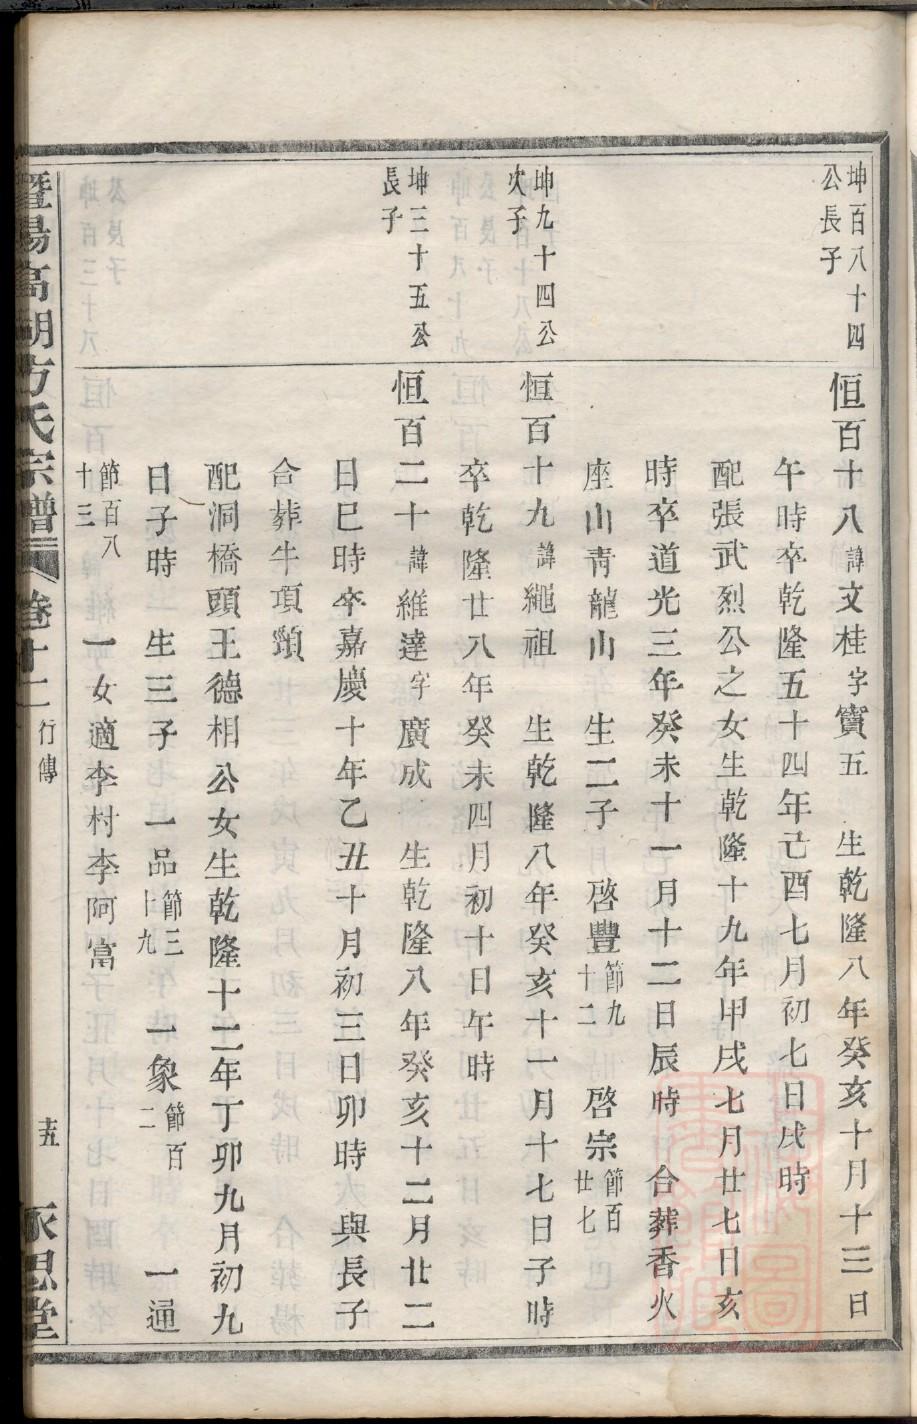 坤百八十四
公長子
恒百十八諱文桂字寳五 生乾隆八年癸亥十月十三日
午時卒乾隆五十四年己酉七月初七日戌時
配張武烈公之女生乾隆十九年甲戌七月廿七日亥
時卒道光三年癸未十一月十二日辰時 合葬香火
座山靑龍山 生二子 啓豐節九十二 啓宗節百廿七
坤九十四公
次子
恒百十九諱繩祖 生乾隆八年癸亥十一月十七日子時
卒乾隆廿八年癸未四月初十日午時
坤三十五公
長子
恒百二十諱維達字廣成 生乾隆八年癸亥十二月廿二
日巳時卒嘉慶十年乙丑十月初三日卯時 與長子
合葬牛項頸
配洞橋頭王德相公女生乾隆十二年丁卯九月初九
日子時 生三子 一品節三十九 一象節百二 一通
節百八十三 一女適李村李阿富
暨陽高湖方氏宗譜 卷十二 行傳 十五 永思堂